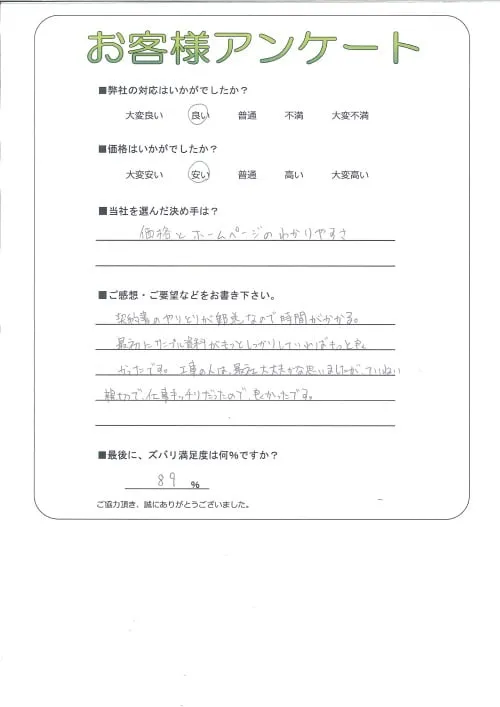 お客様アンケート
■弊社の対応はいかがでしたか？
大変良い 良い 普通 不満 大変不満
■価格はいかがでしたか？
大変安い 安い 普通 高い 大変高い
■当社を選んだ決め手は？
価格とホームページのわかりやすさ
■ご感想・ご要望などをお書き下さい。
契約書のやりとりが郵送なので時間がかかる。
最初にサンプル資料がもっとしっかりしていればもっと良
かったです。工事の人は、最初大丈夫かな思いましたが、ていねい
親切で、仕事キッチリだったので、良かったです。
■最後に、ズバリ満足度は何%ですか？
89 %
ご協力頂き、誠にありがとうございました。